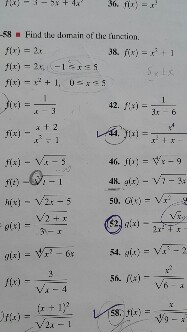 f(x) = 3 − 5x + 4x² 36. f(x) = x³
-58 ■ Find the domain of the function.
f(x) = 2x 38. f(x) = x² + 1
f(x) = 2x, −1 ≤ x ≤ 5
f(x) = x² + 1, 0 ≤ x ≤ 5
f(x) = 1/(x − 3) 42. f(x) = 1/(3x − 6)
f(x) = (x + 2)/(x² − 1) 44. f(x) = x⁴/(x² + x −
f(x) = √(x − 5) 46. f(x) = ∜(x − 9)
f(t) = √(t − 1) 48. g(x) = √(7 − 3x)
h(x) = √(2x − 5) 50. G(x) = √(x²
g(x) = √(2 + x)/(3 − x) 52. g(x) = √x/(2x² + x −
g(x) = ∜(x² − 6x) 54. g(x) = √(x² − 2
f(x) = 3/√(x − 4) 56. f(x) = x²/√(6 − x)
f(x) = (x + 1)²/√(2x − 1) 58. f(x) = x/∜(9 − x